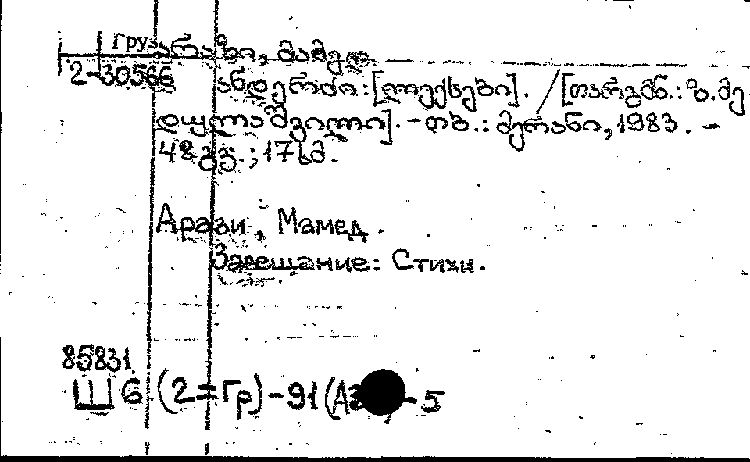 Груз
2-30566
არაზი, მამედ.
ანდერძი:[ლექსები]. / [თარგმნ.: ზ.მე
დულაშვილი]. - თბ.: მერანი, 1983. -
48 გვ.; 17 სმ.
Арази, Мамед.
Завещание: Стихи.
85831
Ш6 (2=Гр)-91(Аз - 5